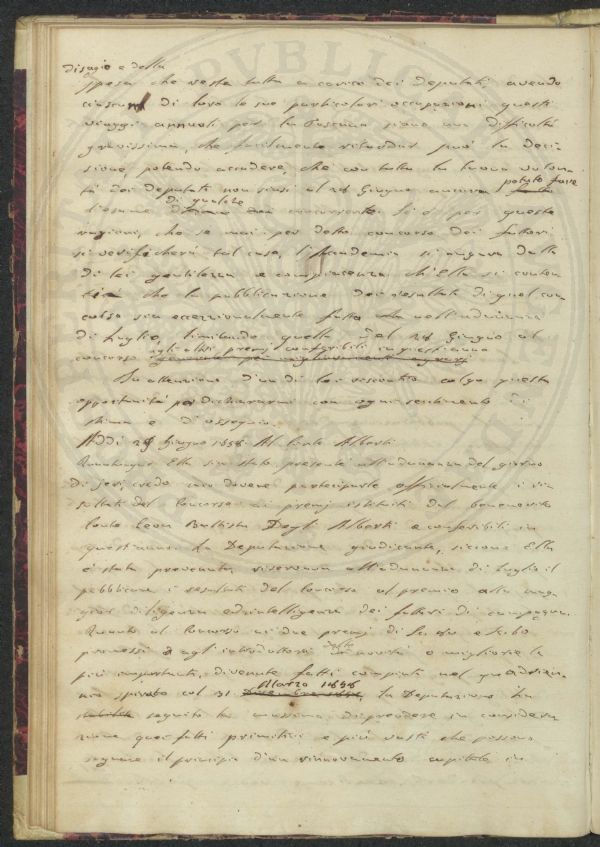 disagio e della
spesa che resta tutta a carico dei Deputati, avendo
ciascuno di loro le sue particolari occupazioni questi
viaggi annuali per la Toscana sono una difficoltà
gravissima, che facilmente ritardar può la deci-
sione, potendo accadere, che con tutta la buona volon-
tà dei deputati non siasi al 28 Giugno ancora potuto fare
l'esame di qualche concorrente. Si è per queste
ragioni, che se mai per detto concorso dei fattori
si verificherà tal caso, l'Accademia si augura dalla
di lei gentilezza e compiacenza ch'Ella si conten-
terà che la pubblicazione dei resultati di quel con-
corso sia eccezionalmente fatta nell'adunanza
di Luglio, limitando quella del 28 Giugno al
concorso agli altri premj conferibili in quest'anno
In attenzione d'un di lei riscontro colgo questa
opportunità per dichiararmi con ogni sentimento di
stima e di ossequio.
Addì 28 Giugno 1858. Al Conte Alberti
Quantunque Ella sia stato presente all'adunanza del giorno
di jeri, credo mio dovere parteciparle officialmente i re-
sultati del Concorso ai premj istituiti dal benemerito
Conte Leon Battista Degli Alberti e conferibili in
quest'anno. La Deputazione giudicante, siccome Ella
è stata prevenuta, riservava all'adunanza di Luglio il
pubblicare i resultati del Concorso al premio alla mag-
gior diligenza ed intelligenza dei fattori di campagna.
Quanto al Concorso ai due premj di
promessi agli introduttori delle novità o migliorie le
più importanti, divenute fatti compiuti nel quadrien-
nio spirato col 31 Marzo 1858 la Deputazione ha
seguito la massima di prendere in considera-
zione quei fatti primitivi e più vasti che possono
segnare il principio d'un rinnovamento capitale in